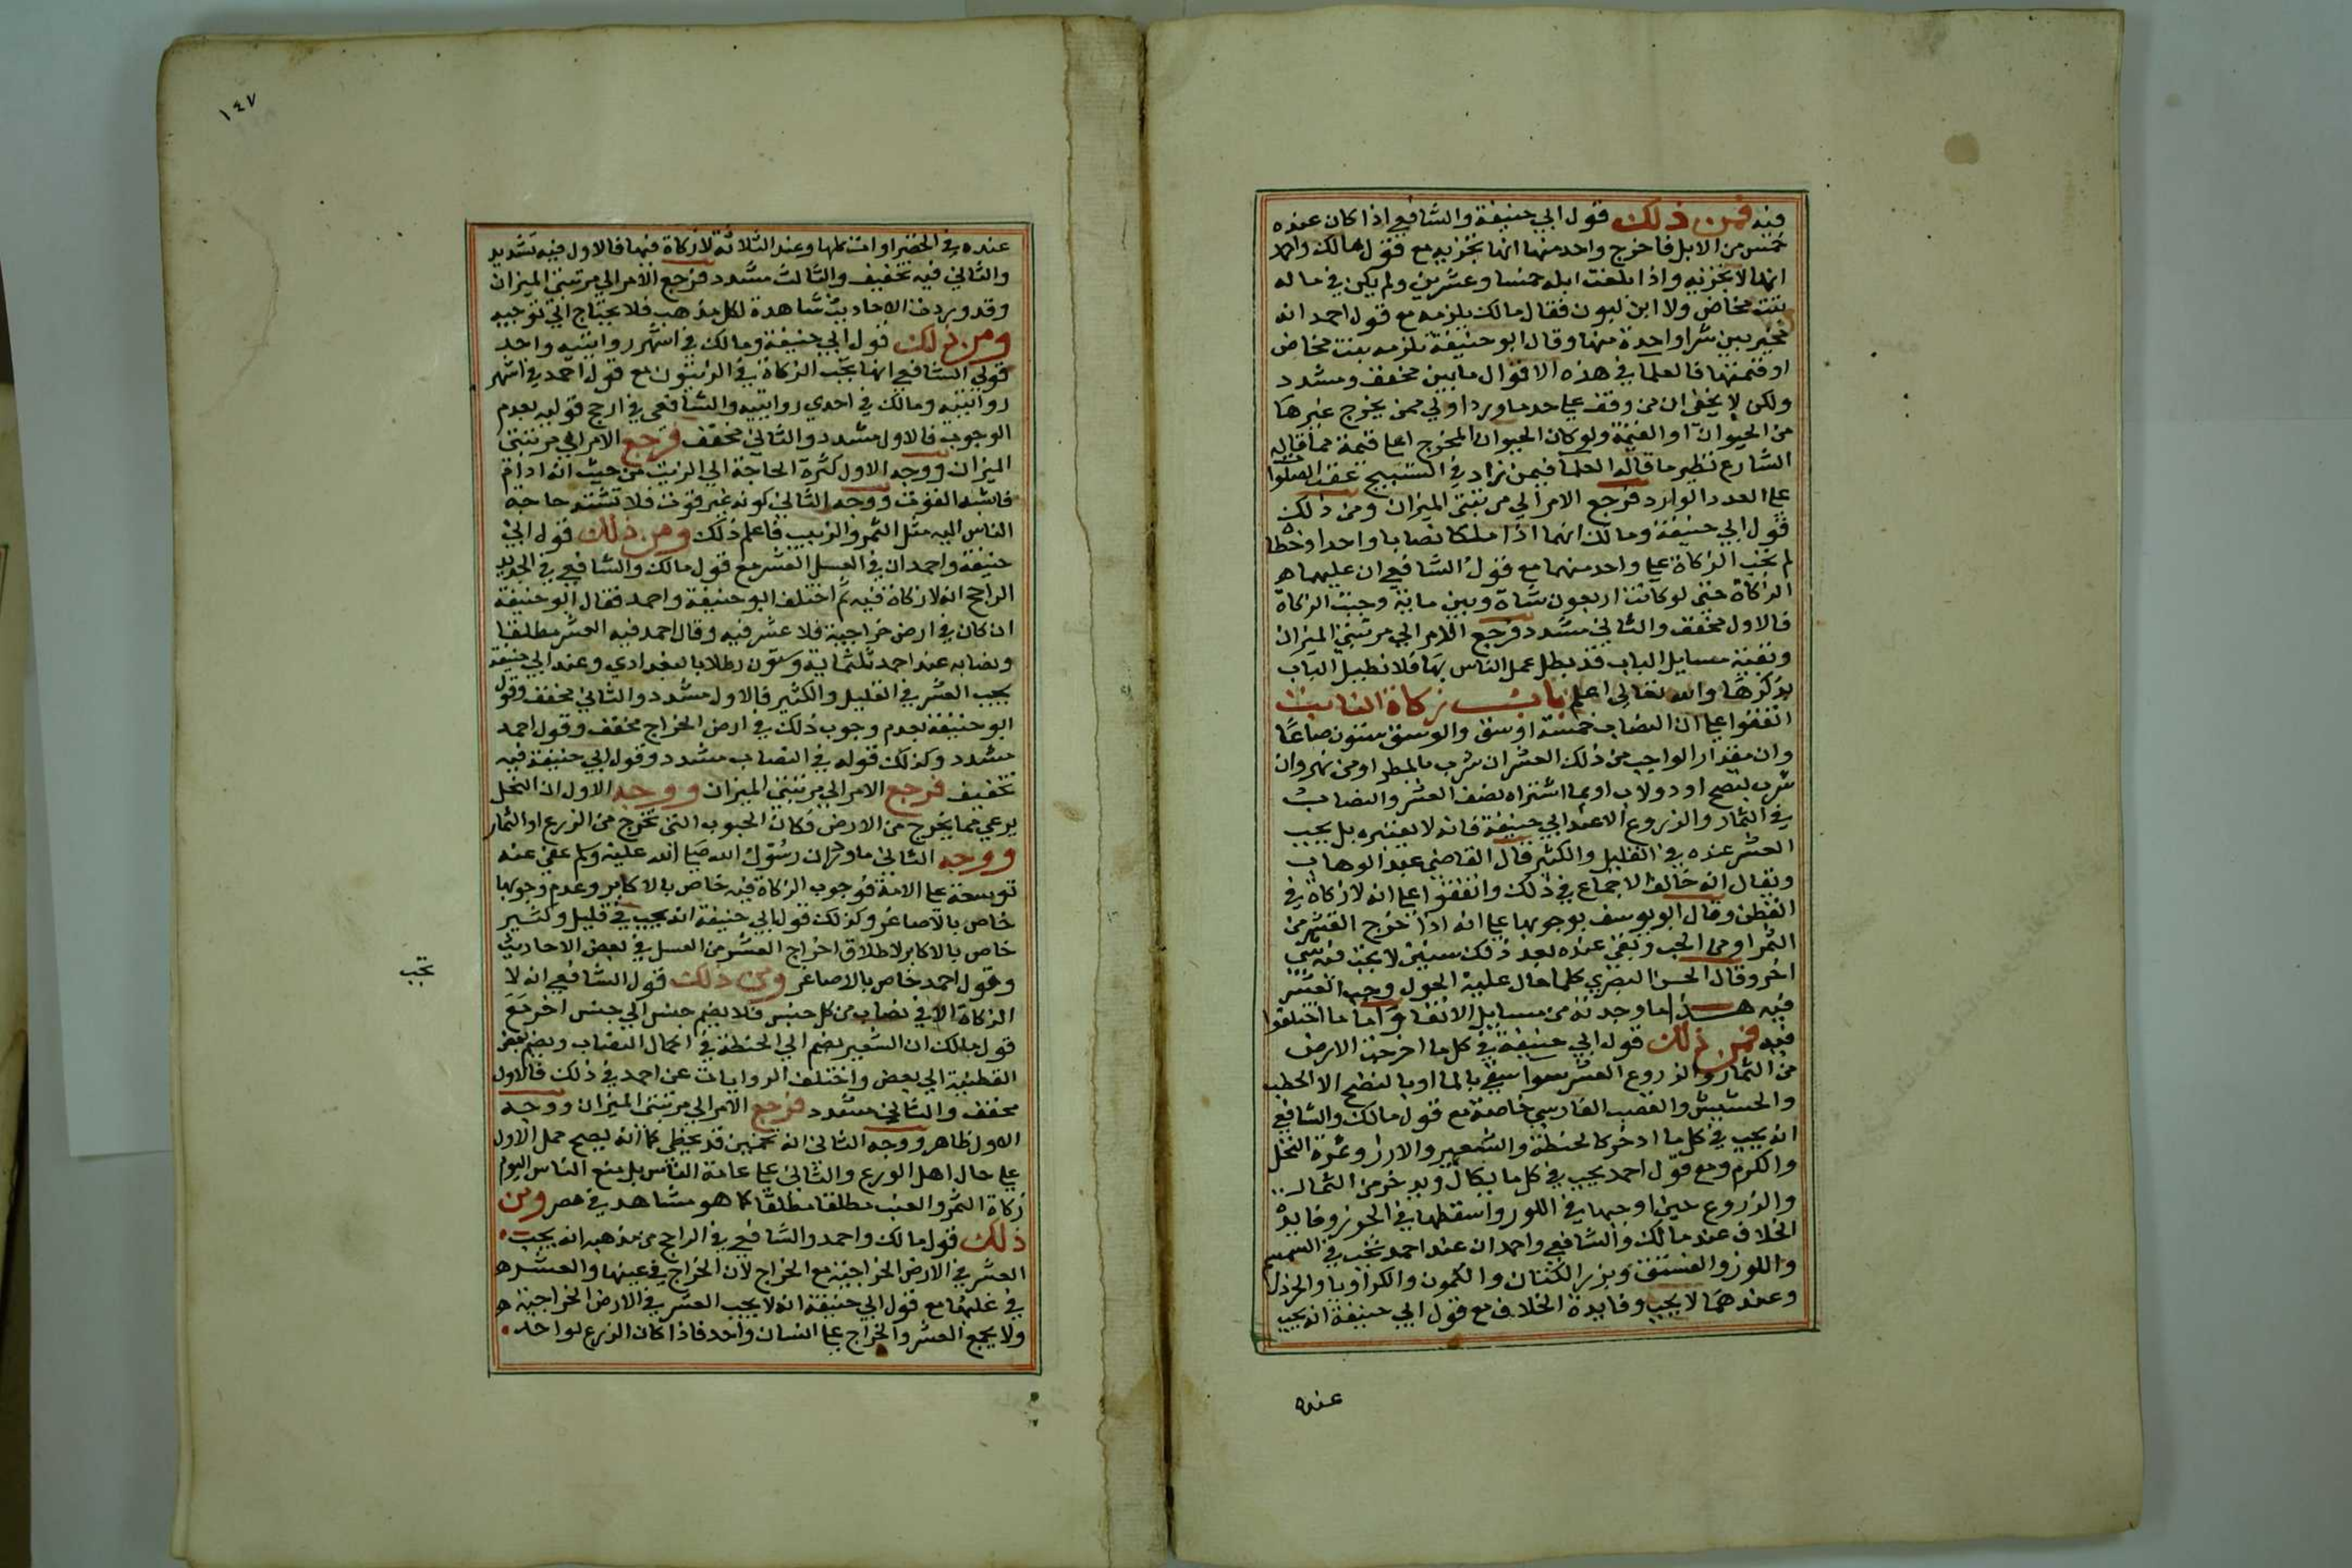 فيه فمن ذلك قول ابي حنيفة والشافعي اذا كان عنده
خمس من الابل فاخرج واحد منها انها تجزيه مع قول مالك واحمد
انها لا تجزيه واذا بلغت ابله خمسا وعشرين ولم يكن في ماله
بنت مخاض ولا ابن لبون فقال مالك يلزمه مع قول احمد انه
مخير بين شرا واحدة منها وقال ابو حنيفة تلزمه بنت مخاض
او قيمتها فالعلما في هذه الاقوال ما بين مخفف ومشدد
ولكن لا يخفى ان من وقف على حد ما ورد اولي ممن يخرج غيرها
من الحيوان او القيمة ولو كان الحيوان المخرج اعلا قيمة مما قاله
الشارع نظير ما قاله العلما فيمن زاد في التسبيح عقب الصلوات
على العدد الوارد فرجع الامر الي مرتبتي الميزان ومن ذلك
قول ابي حنيفة ومالك انهما اذا ملكا نصابا واحدا وخلطا
لم تجب الزكاة على واحد منهما مع قول الشافعي ان عليهما
الزكاة حتى لو كانت اربعون شاة وبين ماية وجبت الزكاة
فالاول مخفف والثاني مشدد فرجع الامر الي مرتبتي الميزان
وبقية مسايل الباب قد بطل عمل الناس بها فلا نطيل الباب
بذكرها والله تعالى اعلم باب زكاة النابت
اتفقوا على ان النصاب خمسة اوسق والوسق ستون صاعا
وان مقدار الواجب من ذلك العشر ان شرب بالمطر او من نهر وان
شرب بنضح او دولاب او بما اشتراه نصف العشر والنصاب
في الثمار والزروع الا عند ابي حنيفة فانه لا يعتبره بل يجب
العشر عنده في القليل والكثير قال القاضي عبد الوهاب
ويقال انه خالف الاجماع في ذلك واتفقوا على انه لا زكاة في
القطن وقال ابو يوسف بوجوبها على انه اذا خرج العشر من
الثمر او من الحب وبقي عنده بعد ذلك سنين لا يجب فيه شي
اخر وقال الحسن البصري كلما حال عليه الحول وجب العشر
فيه هذا ما وجدته من مسايل الاتفاق واما ما اختلفوا
فيه فمن ذلك قول ابي حنيفة في كل ما اخرجت الارض
من الثمار والزروع العشر سوا سقي بالما او بالنضح الا الحطب
والحشيش والقصب الفارسي خاصة مع قول مالك والشافعي
انه يجب في كل ما ادخر كالحنطة والشعير والارز وثمرة النخل
والكرم ومع قول احمد يجب في كل ما يكال ويدخر من الثمار
والزروع حين اوجبها في اللوز واسقطها في الجوز وفايدة
الخلاف عند مالك والشافعي واحمد ان عند احمد تجب في السمسم
واللوز والفستق وبزر الكتان والكمون والكراويا والخردل
وعندهما لا يجب وفايدة الخلاف مع قول ابي حنيفة انه يجب
عنده
١٤٧
عنده في الخضراوات كلها وعند الثلاثة لا زكاة فيها فالاول فيه تشديد
والثاني فيه تخفيف والثالث مشدد فرجع الامر الي مرتبتي الميزان
وقد وردت الاحاديث شاهدة لكل مذهب فلا يحتاج الي توجيه
ومن ذلك قول ابي حنيفة ومالك في اشهر روايتيه واحد
قولي الشافعي انها تجب الزكاة في الزيتون مع قول احمد في اشهر
روايتيه ومالك في احدي روايتيه والشافعي في ارجح قوليه بعدم
الوجوب فالاول مشدد والثاني مخفف فرجع الامر الي مرتبتي
الميزان ووجه الاول كثرة الحاجة الي الزيت من حيث انه ادام
فاشبه القوت ووجه الثاني كونه غير قوت فلا تشتد حاجة
الناس اليه مثل الثمر والزبيب فاعلم ذلك ومن ذلك قول ابي
حنيفة واحمد ان في العسل العشر مع قول مالك والشافعي في الجديد
الراجح انه لا زكاة فيه ثم اختلف ابو حنيفة واحمد فقال ابو حنيفة
ان كان في ارض خراجية فلا عشر فيه وقال احمد فيه العشر مطلقا
ونصابه عند احمد ثلثماية وستون رطلا بالبغدادي وعند ابي حنيفة
يجب العشر في القليل والكثير فالاول مشدد والثاني مخفف وقول
ابو حنيفة بعدم وجوب ذلك في ارض الخراج مخفف وقول احمد
مشدد وكذلك قوله في النصاب مشدد وقول ابي حنيفة فيه
تخفيف فرجع الامر الي مرتبتي الميزان ووجه الاول ان النحل
يرعي مما يخرج من الارض فكان الحبوب التي تخرج من الزرع او الثمار
ووجه الثاني ما ورد ان رسول الله صلى الله عليه وسلم عفى عنه
توسعة على الامة فوجوب الزكاة فيه خاص بالاكابر وعدم وجوبها
خاص بالاصاغر وكذلك قول ابي حنيفة انه يجب في قليل وكثير
خاص بالاكابر لاطلاق اخراج العشر من العسل في بعض الاحاديث
وقول احمد خاص بالاصاغر ومن ذلك قول الشافعي انه لا
تجب
الزكاة الا في نصاب من كل جنس فلا يضم جنس الي جنس اخر مع
قول مالك ان الشعير يضم الي الحنطة في اكمال النصاب ويضم بعض
القطنية الي بعض واختلف الروايات عن احمد في ذلك فالاول
مخفف والثاني مشدد فرجع الامر الي مرتبتي الميزان ووجه
الاول ظاهر ووجه الثاني انه تخمين قد يخطي كما انه يصح حمل الاول
على حال اهل الورع والثاني على عامة الناس بل منع الناس اليوم
زكاة الثمر والعنب مطلقا مطلقا كما هو مشاهد في مصر ومن
ذلك قول مالك واحمد والشافعي في الراجح من مذهبه انه يجب
العشر في الارض الخراجية مع الخراج لان الخراج في عينها والعشر
في غلتها مع قول ابي حنيفة انه لا يجب العشر في الارض الخراجية
ولا يجمع العشر والخراج على انسان واحد فاذا كان الزرع لواحد